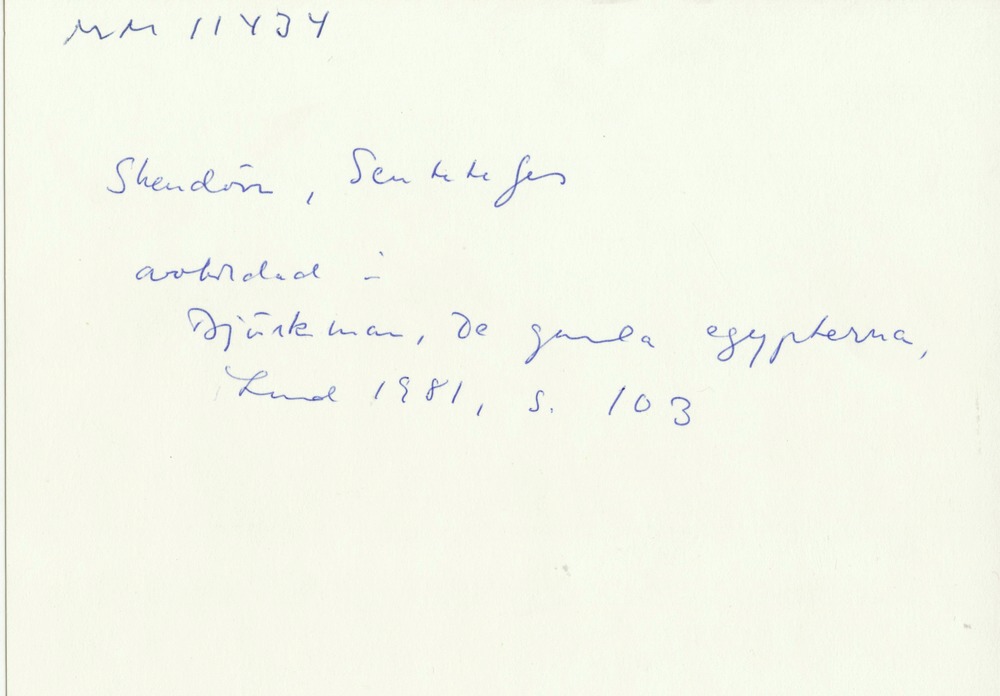 MM 11434
Skendörr,
avbildad i
Björkman, De gamla egypterna,
Lund 1981, s. 103